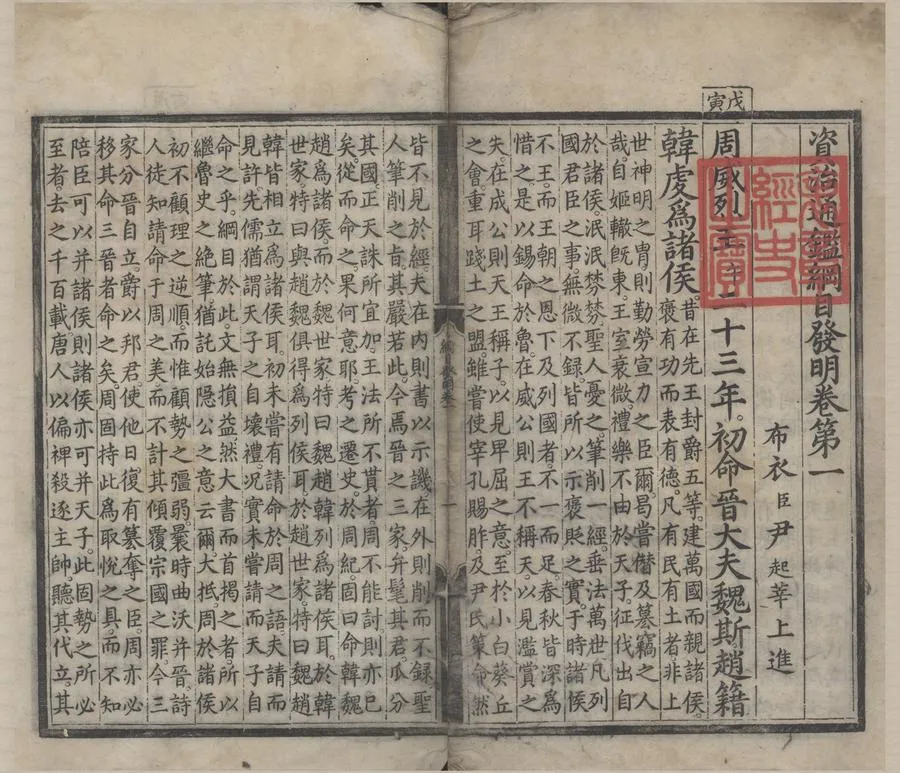 資治通鑑綱目發明卷第一
布衣臣尹起莘上進
戊寅
周威烈王二十三年。初命晉大夫魏斯趙籍
韓虔爲諸侯。昔在先王封爵五等。建萬國而親諸侯。
褒有功而表有德。凡有民有土者。非上
世神明之胄。則勤勞宣力之臣爾。曷嘗僭及墓竊之人
哉。自姬轍旣東。王室衰微。禮樂不由於天子。征伐出自
於諸侯。泯泯棼棼。聖人憂之。筆削一經。垂法萬世。凡列
國君臣之事。無微不錄。皆所以示褒貶之實。于時諸侯
不王。而王朝之恩。下及列國者。不一而足。春秋皆深爲
惜之。是以錫命於魯。在威公則王不稱天。以見濫賞之
失。在成公則天王稱子。以見卑屈之意。至於小白葵丘
之會。重耳踐土之盟。雖嘗使宰孔賜胙。及尹氏策命。然
皆不見於經。夫在內則書以示譏。在外則削而不錄。聖
人筆削之旨。其嚴若此。今焉晉之三家。弁髦其君。瓜分
其國。正天誅所宜加。王法所不貰者。周不能討則亦已
矣。從而命之。果何意耶。考之遷史。於周紀。固曰命韓魏
趙爲諸侯。而於魏世家。特曰魏趙韓列爲諸侯耳。於韓
世家。特曰與趙魏俱得爲列侯耳。於趙世家。特曰魏趙
韓皆相立爲諸侯耳。初未嘗有請命於周之語。夫請而
見許。先儒猶謂天子之自壞禮。況實未嘗請而天子自
命之乎。綱目於此。文無損益。然大書而首揭之者。所以
繼魯史之絕筆。猶託始隱公之意云爾。大抵周於諸侯
初不顧理之逆順。而惟顧勢之彊弱。曩時曲沃并晉。詩
人徒知請命于周之美。而不計其傾覆宗國之罪。今三
家分晉自立。爵以邦君。使他日復有篡奪之臣。周亦必
移其命三晉者命之矣。周固持此爲取悅之具。而不知
陪臣可以并諸侯。則諸侯亦可并天子。此固勢之所必
至者。去之千百載。唐人以偏裨殺逐主帥。聽其代立。其
表章經史之寶